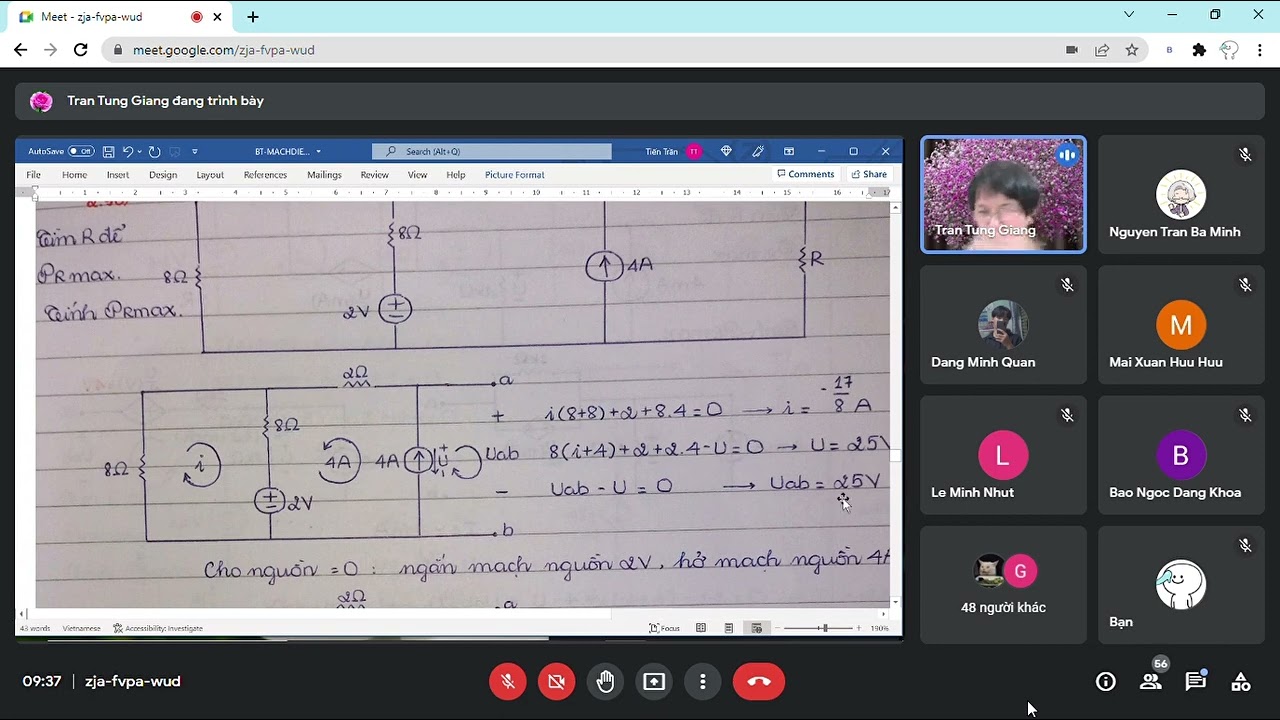 Meet - zja-fvpa-wud
meet.google.com/zja-fvpa-wud
Tran Tung Giang đang trình bày
AutoSave Off
BT-MACHDIE...
Search (Alt+Q)
Tiến Trần TT
File Home Insert Design Layout References Mailings Review View Help Picture Format Comments Share
1 2 3 4 5 6 7 8 9 10 11 12 13 14 15 16 17
Tìm R để
PRmax.
Tính PRmax.
8Ω
8Ω
2V
4A
R
2Ω
a
8Ω
i
8Ω
2V
4A
4A
+ U -
+ Uab -
b
i(8+8)+2+8.4=0 → i = -17/8 A
8(i+4)+2+2.4-U=0 → U = 25V
Uab - U = 0 → Uab = 25V
Cho nguồn = 0 : ngắn mạch nguồn 2V, hở mạch nguồn 4A
2Ω
a
43 words Vietnamese Accessibility: Investigate Focus 190%
Tran Tung Giang
Nguyen Tran Ba Minh
Dang Minh Quan
M
Mai Xuan Huu Huu
L
Le Minh Nhut
B
Bao Ngoc Dang Khoa
G
48 người khác
Bạn
09:37 | zja-fvpa-wud
56